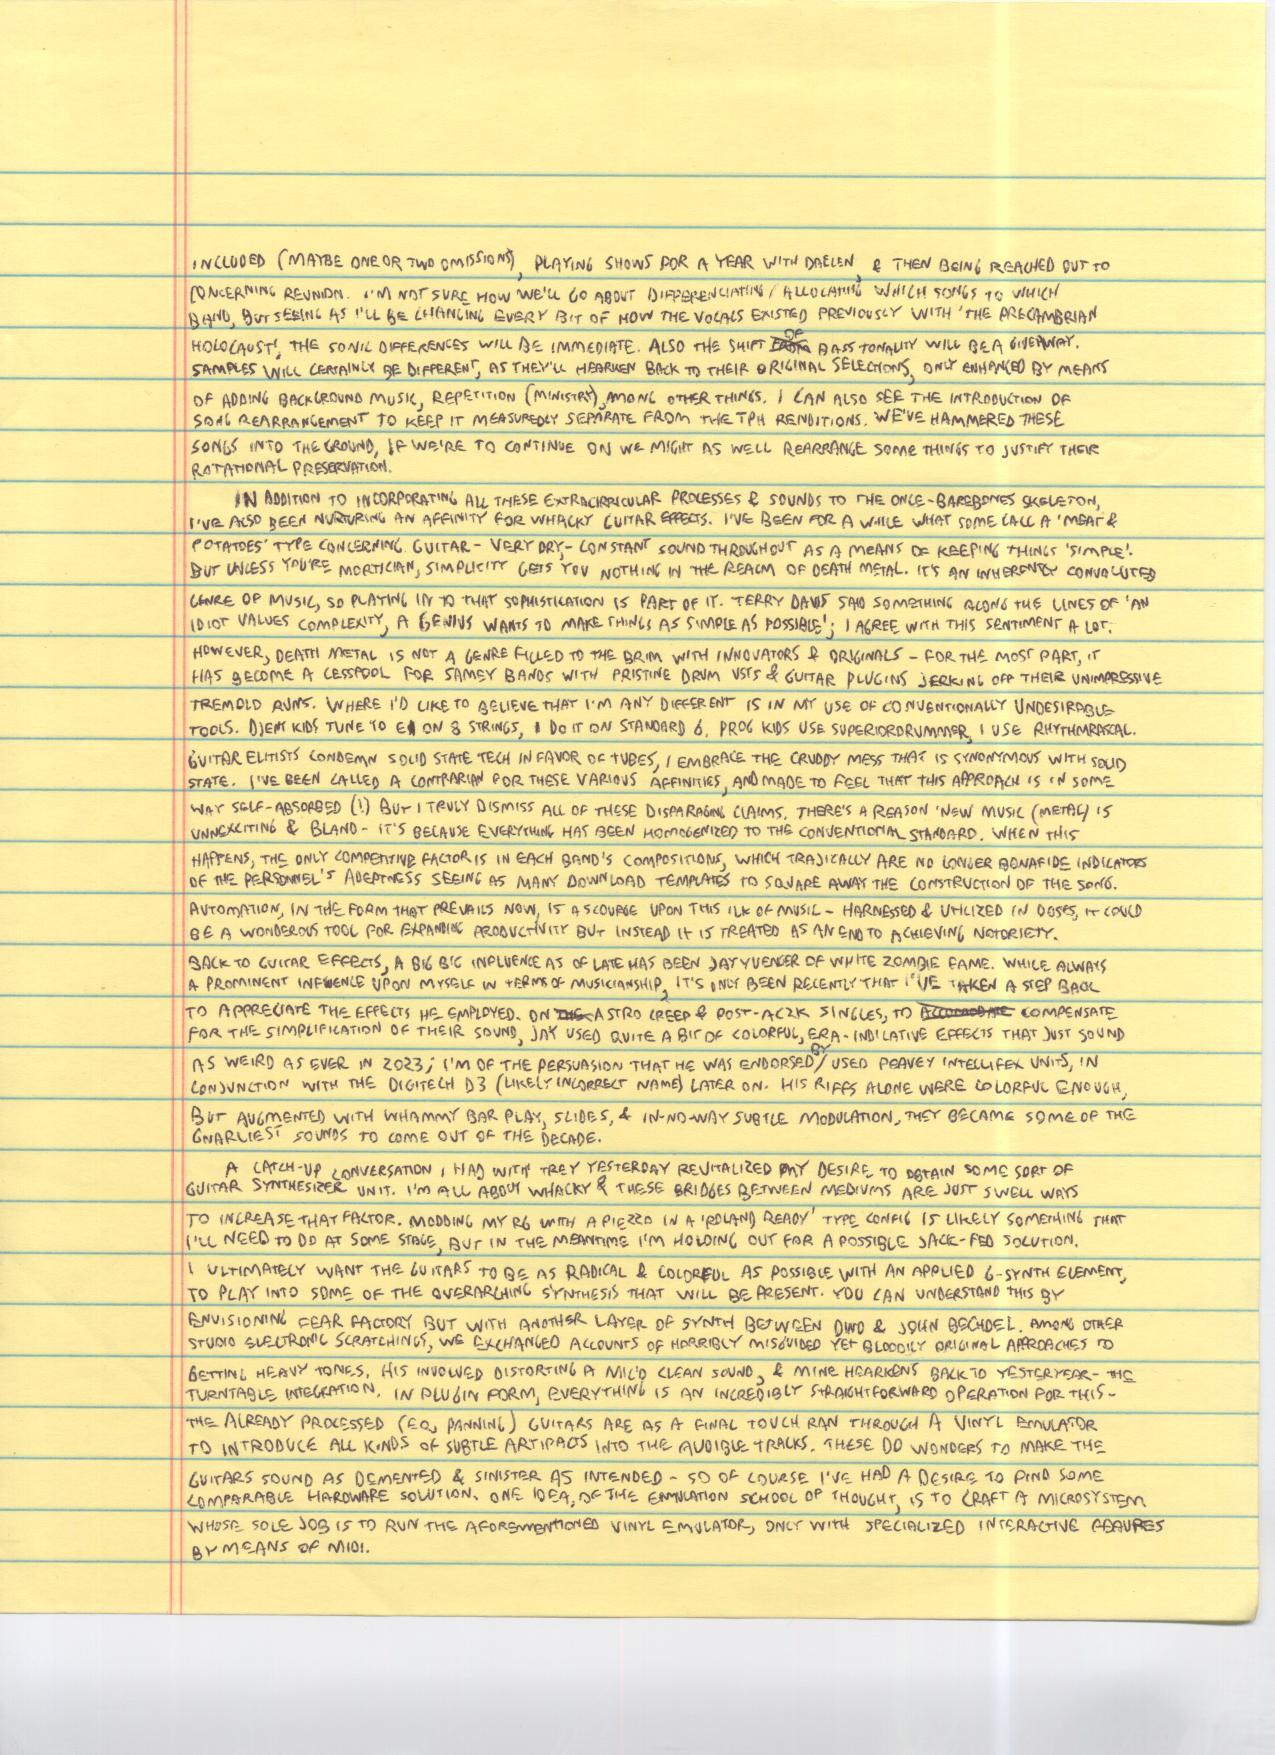 INCLUDED (MAYBE ONE OR TWO OMISSIONS), PLAYING SHOWS FOR A YEAR WITH DAELEN, & THEN BEING REACHED OUT TO
CONCERNING REUNION. I'M NOT SURE HOW WE'LL GO ABOUT DIFFERENCIATING/ALLOCATING WHICH SONGS TO WHICH
BAND, BUT SEEING AS I'LL BE CHANGING EVERY BIT OF HOW THE VOCALS EXISTED PREVIOUSLY WITH 'THE PRECAMBRIAN
HOLOCAUST', THE SONIC DIFFERENCES WILL BE IMMEDIATE. ALSO THE SHIFT OF BASS TONALITY WILL BE A GIVEAWAY.
SAMPLES WILL CERTAINLY BE DIFFERENT, AS THEY'LL HEARKEN BACK TO THEIR ORIGINAL SELECTIONS, ONLY ENHANCED BY MEANS
OF ADDING BACKGROUND MUSIC, REPETITION (MINISTRY), AMONG OTHER THINGS. I CAN ALSO SEE THE INTRODUCTION OF
SONG REARRANGEMENT TO KEEP IT MEASUREDLY SEPARATE FROM THE TPH RENDITIONS. WE'VE HAMMERED THESE
SONGS INTO THE GROUND, IF WE'RE TO CONTINUE ON WE MIGHT AS WELL REARRANGE SOME THINGS TO JUSTIFY THEIR
ROTATIONAL PRESERVATION.
IN ADDITION TO INCORPORATING ALL THESE EXTRACIRRICULAR PROCESSES & SOUNDS TO THE ONCE-BAREBONES SKELETON,
I'VE ALSO BEEN NURTURING AN AFFINITY FOR WHACKY GUITAR EFFECTS. I'VE BEEN FOR A WHILE WHAT SOME CALL A 'MEAT &
POTATOES' TYPE CONCERNING GUITAR - VERY DRY, - CONSTANT SOUND THROUGHOUT AS A MEANS OF KEEPING THINGS 'SIMPLE'.
BUT UNLESS YOU'RE MORTICIAN, SIMPLICITY GETS YOU NOTHING IN THE REALM OF DEATH METAL. IT'S AN INHERENTLY CONVOLUTED
GENRE OF MUSIC, SO PLAYING IN TO THAT SOPHISTICATION IS PART OF IT. TERRY DAVIS SAID SOMETHING ALONG THE LINES OF 'AN
IDIOT VALUES COMPLEXITY, A GENIUS WANTS TO MAKE THINGS AS SIMPLE AS POSSIBLE'; I AGREE WITH THIS SENTIMENT A LOT.
HOWEVER, DEATH METAL IS NOT A GENRE FILLED TO THE BRIM WITH INNOVATORS & ORIGINALS - FOR THE MOST PART, IT
HAS BECOME A CESSPOOL FOR SAMEY BANDS WITH PRISTINE DRUM VSTS & GUITAR PLUGINS JERKING OFF THEIR UNIMPRESSIVE
TREMOLO RUNS. WHERE I'D LIKE TO BELIEVE THAT I'M ANY DIFFERENT IS IN MY USE OF CONVENTIONALLY UNDESIRABLE
TOOLS. DJENT KIDS TUNE TO E1 ON 8 STRINGS, I DO IT ON STANDARD 6. PROG KIDS USE SUPERIORDRUMMER, I USE RHYTHMRASCAL.
GUITAR ELITISTS CONDEMN SOLID STATE TECH IN FAVOR OF TUBES, I EMBRACE THE CRUDDY MESS THAT IS SYNONYMOUS WITH SOLID
STATE. I'VE BEEN CALLED A CONTRARIAN FOR THESE VARIOUS AFFINITIES, AND MADE TO FEEL THAT THIS APPROACH IS IN SOME
WAY SELF-ABSORBED (!) BUT I TRULY DISMISS ALL OF THESE DISPARAGING CLAIMS. THERE'S A REASON 'NEW MUSIC (METAL) IS
UNNEXCITING & BLAND - IT'S BECAUSE EVERYTHING HAS BEEN HOMOGENIZED TO THE CONVENTIONAL STANDARD. WHEN THIS
HAPPENS, THE ONLY COMPETITIVE FACTOR IS IN EACH BAND'S COMPOSITIONS, WHICH TRAJICALLY ARE NO LONGER BONAFIDE INDICATORS
OF THE PERSONNEL'S ADEPTNESS SEEING AS MANY DOWNLOAD TEMPLATES TO SQUARE AWAY THE CONSTRUCTION OF THE SONG.
AUTOMATION, IN THE FORM THAT PREVAILS NOW, IS A SCOURGE UPON THIS ILK OF MUSIC - HARNESSED & UTILIZED IN DOSES, IT COULD
BE A WONDEROUS TOOL FOR EXPANDING PRODUCTIVITY BUT INSTEAD IT IS TREATED AS AN END TO ACHIEVING NOTORIETY.
BACK TO GUITAR EFFECTS, A BIG BIG INFLUENCE AS OF LATE HAS BEEN JAY YUENGER OF WHITE ZOMBIE FAME. WHILE ALWAYS
A PROMINENT INFLUENCE UPON MYSELF IN TERMS OF MUSICIANSHIP, IT'S ONLY BEEN RECENTLY THAT I'VE TAKEN A STEP BACK
TO APPRECIATE THE EFFECTS HE EMPLOYED. ON ASTRO CREEP & POST-AC2K SINGLES, TO COMPENSATE
FOR THE SIMPLIFICATION OF THEIR SOUND, JAY USED QUITE A BIT OF COLORFUL, ERA-INDICATIVE EFFECTS THAT JUST SOUND
AS WEIRD AS EVER IN 2023; I'M OF THE PERSUASION THAT HE WAS ENDORSED BY/USED PEAVEY INTELLIFEX UNITS, IN
CONJUNCTION WITH THE DIGITECH D3 (LIKELY INCORRECT NAME) LATER ON. HIS RIFFS ALONE WERE COLORFUL ENOUGH,
BUT AUGMENTED WITH WHAMMY BAR PLAY, SLIDES, & IN-NO-WAY SUBTLE MODULATION, THEY BECAME SOME OF THE
GNARLIEST SOUNDS TO COME OUT OF THE DECADE.
A CATCH-UP CONVERSATION I HAD WITH TREY YESTERDAY REVITALIZED MY DESIRE TO OBTAIN SOME SORT OF
GUITAR SYNTHESIZER UNIT. I'M ALL ABOUT WHACKY & THESE BRIDGES BETWEEN MEDIUMS ARE JUST SWELL WAYS
TO INCREASE THAT FACTOR. MODDING MY RG WITH A PIEZZO IN A 'ROLAND READY' TYPE CONFIG IS LIKELY SOMETHING THAT
I'LL NEED TO DO AT SOME STAGE, BUT IN THE MEANTIME I'M HOLDING OUT FOR A POSSIBLE JACK-FED SOLUTION.
I ULTIMATELY WANT THE GUITARS TO BE AS RADICAL & COLORFUL AS POSSIBLE WITH AN APPLIED G-SYNTH ELEMENT,
TO PLAY INTO SOME OF THE OVERARCHING SYNTHESIS THAT WILL BE PRESENT. YOU CAN UNDERSTAND THIS BY
ENVISIONING FEAR FACTORY BUT WITH ANOTHER LAYER OF SYNTH BETWEEN DINO & JOHN BECHDEL. AMONG OTHER
STUDIO ELECTRONIC SCRATCHINGS, WE EXCHANGED ACCOUNTS OF HORRIBLY MISGUIDED YET BLOODILY ORIGINAL APPROACHES TO
GETTING HEAVY TONES. HIS INVOLVED DISTORTING A MIC'D CLEAN SOUND, & MINE HEARKENS BACK TO YESTERYEAR - THE
TURNTABLE INTEGRATION. IN PLUGIN FORM, EVERYTHING IS AN INCREDIBLY STRAIGHTFORWARD OPERATION FOR THIS -
THE ALREADY PROCESSED (EQ, PANNING) GUITARS ARE AS A FINAL TOUCH RAN THROUGH A VINYL EMULATOR
TO INTRODUCE ALL KINDS OF SUBTLE ARTIFACTS INTO THE AUDIBLE TRACKS. THESE DO WONDERS TO MAKE THE
GUITARS SOUND AS DEMENTED & SINISTER AS INTENDED - SO OF COURSE I'VE HAD A DESIRE TO FIND SOME
COMPARABLE HARDWARE SOLUTION. ONE IDEA, OF THE EMULATION SCHOOL OF THOUGHT, IS TO CRAFT A MICROSYSTEM
WHOSE SOLE JOB IS TO RUN THE AFOREMENTIONED VINYL EMULATOR, ONLY WITH SPECIALIZED INTERACTIVE FEAURES
BY MEANS OF MIDI.